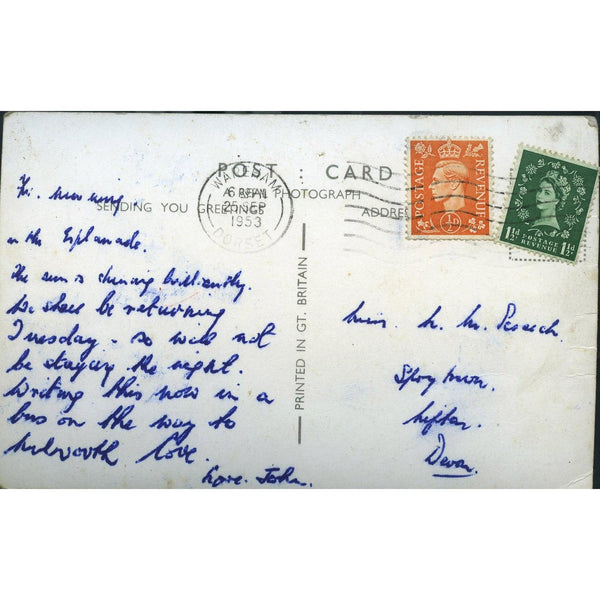 POST : CARD
REAL PHOTOGRAPH
SENDING YOU GREETINGS
ADDRESS
WAREHAM
6 PM
25 SEP
1953
DORSET
POSTAGE
REVENUE
½D
1½D
POSTAGE
REVENUE
1½D
PRINTED IN GT. BRITAIN
This morning
on the Esplanade.
The sun is shining brilliantly.
We shall be returning
Tuesday - so will not
be staying the night.
Writing this now in a
bus on the way to
Lulworth Cove.
Love. John.
Miss
Lifton
Devon.